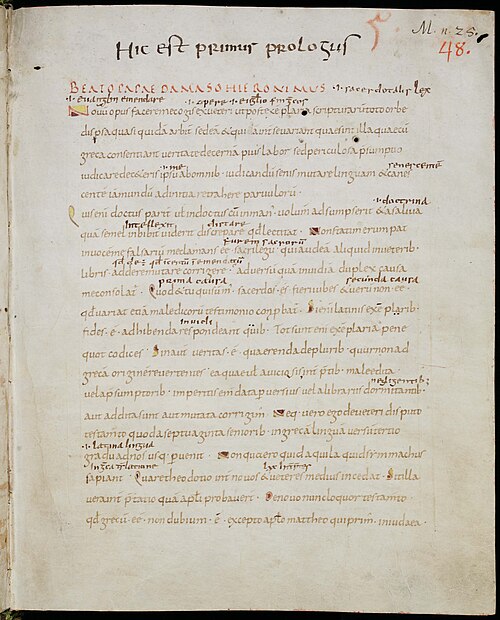 M. n. 25.
48.
Hic est primus prologus
BEATO PAPAE DAMASO HIERONIMUS · i· sacerdotalis lex
·i· evangelii emendare ·i· opere ·i·
Novu opus facere me cogis ex veteri ut post exeplaria scripturaru toto orbe
dispersa quasi quida arbit sedea & qui a int se variant quae sint illa quae cu
greca consentiant veritate decerna pius labor sed periculosa psumptio
iudicare de c&eris ipsu ab omnib· iudicandu senis mutare lingua &canes
cente ia mundu ad initia retrahere parvuloru·
·i· doctrina
us eni doctus parit vel indoctus cu in man· volum adsumpserit & a saliva
intellexit dictare
qua semel inbibit viderit discrepare qd lectitat · Non statim erumpat
furem sacroru
in voce me falsariu me clamans ee· sacrilegu qui audea aliquid in veterib·
libris· addere mutare corrigere· adversu qua invidia duplex causa
prima causa secunda causa
me consolat· Quod & tu qui sum· sacerdos· e· fieri iubes & veru non ee·
qd variat etia maledicoru testimonio conpbat· Si eni latinis exeplarib·
fides· e· adhibenda respondeant quib· Tot sunt eni exeplaria pene
quot codices· Sin aut veritas· e· quaerenda de plurib· quur non ad
greca origine revertentes· ea quae vel a viciosis int ptib· male edita
neglegentib·
vel a psumptorib· inperitis emdata pversius vel a librariis dormitantib·
aut addita sunt aut mutata corrigim· Neq· vero ego de veteri disputo
testamto quod a septuaginta seniorib· in greca lingua versu tertio
·i· latina lingua
gradu ad nos usq· pvenit· Non quaero quid aquila quid simmachus
sapiant· Quare theodotio int novos & veteres medius incedat· Sit illa
vera int ptatio qua apli probaverunt· De novo nunc loquor testamto·
qd grecu ee· non dubium· e· excepto aplo mattheo qui prim· in iudaea·